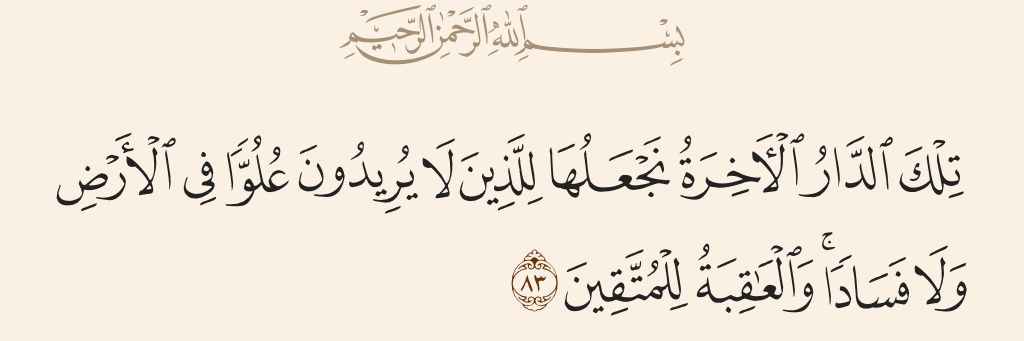 بِسْمِ ٱللَّهِ ٱلرَّحْمَٰنِ ٱلرَّحِيمِ
تِلْكَ ٱلدَّارُ ٱلْأَخِرَةُ نَجْعَلُهَا لِلَّذِينَ لَا يُرِيدُونَ عُلُوًّا فِى ٱلْأَرْضِ
وَلَا فَسَادًا ۚ وَٱلْعَٰقِبَةُ لِلْمُتَّقِينَ ٨٣